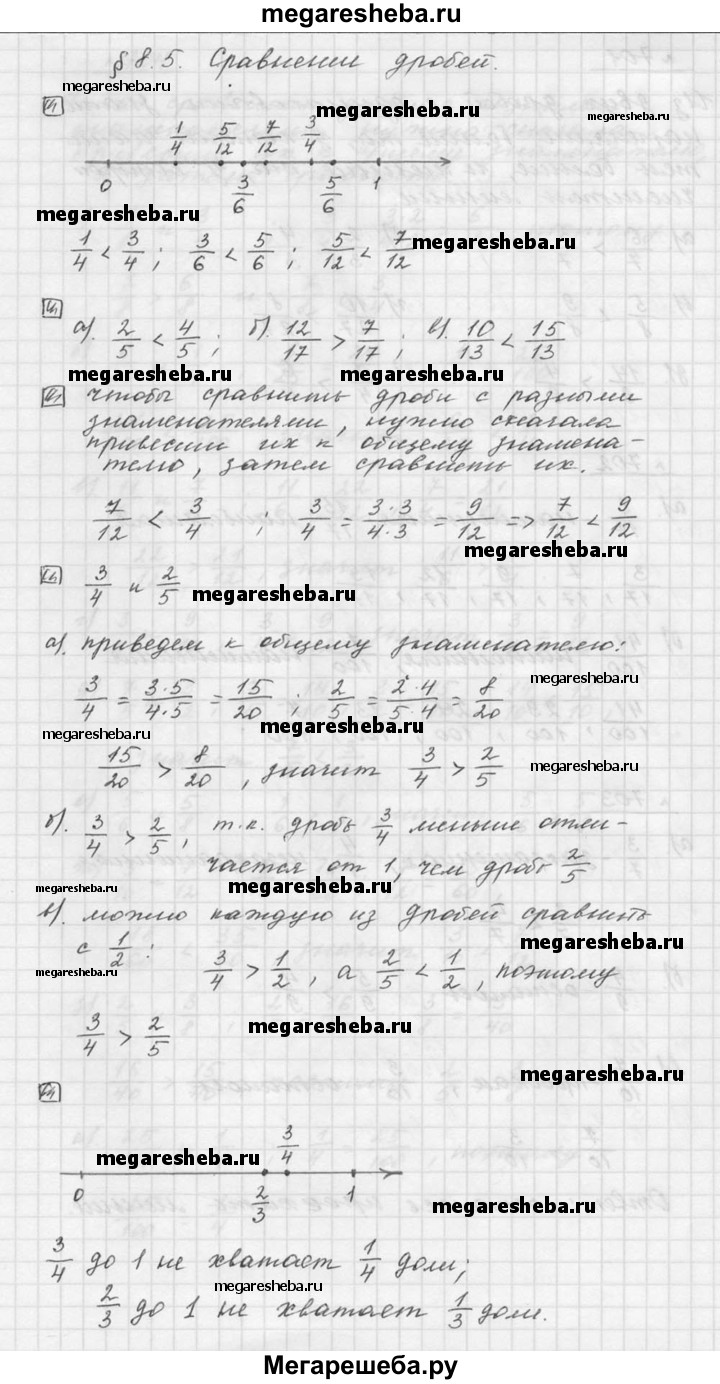 megaresheba.ru
§ 8.5. Сравнении дробей.
megaresheba.ru
megaresheba.ru
megaresheba.ru
1/4 5/12 7/12 3/4
0 3/6 5/6 1
megaresheba.ru
1/4 < 3/4 ; 3/6 < 5/6 ; 5/12 < 7/12
megaresheba.ru
а). 2/5 < 4/5 ; б). 12/17 > 7/17 ; в). 10/13 < 15/13
megaresheba.ru megaresheba.ru
чтобы сравнить дроби с разными
знаменателями, нужно сначала
привести их к общему знамена-
телю, затем сравнить их.
7/12 < 3/4 ; 3/4 = 3·3/4·3 = 9/12 => 7/12 < 9/12
megaresheba.ru
3/4 и 2/5
megaresheba.ru
а). приведем к общему знаменателю:
megaresheba.ru
3/4 = 3·5/4·5 = 15/20 ; 2/5 = 2·4/5·4 = 8/20
megaresheba.ru
megaresheba.ru
15/20 > 8/20 , значит 3/4 > 2/5
megaresheba.ru
б). 3/4 > 2/5, т.к. дробь 3/4 меньше отли-
чается от 1, чем дробь 2/5
megaresheba.ru
megaresheba.ru
в). можно каждую из дробей сравнить
с 1/2 :
megaresheba.ru
3/4 > 1/2 , а 2/5 < 1/2 , поэтому
megaresheba.ru
3/4 > 2/5
megaresheba.ru
megaresheba.ru
3/4
megaresheba.ru
0 2/3 1
megaresheba.ru
3/4 до 1 не хватает 1/4 доли;
megaresheba.ru
2/3 до 1 не хватает 1/3 доли.
Мегарешеба.ру